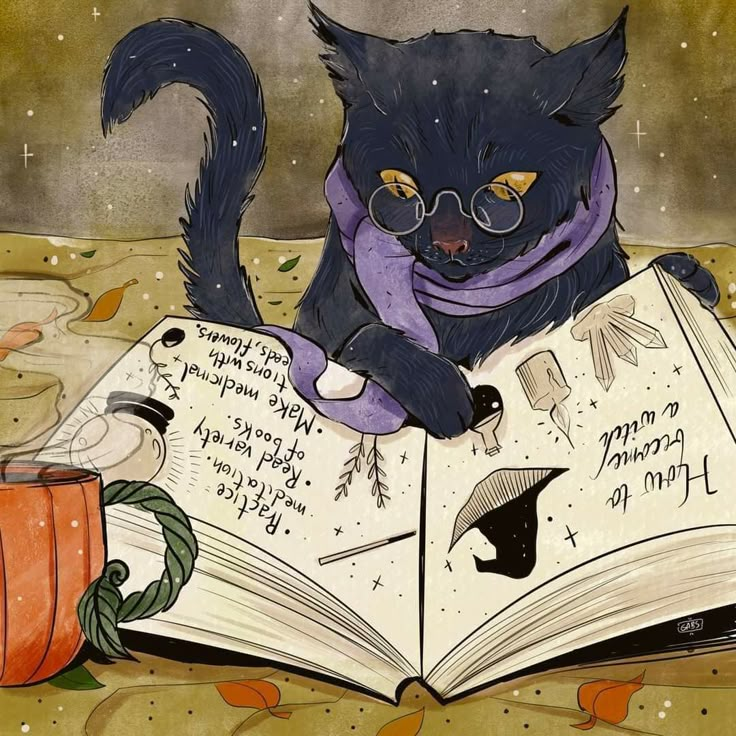 How to
become
a witch
• Practice
meditation.
• Read variety
of books.
• Make medicinal
tions with
eeds, flowers,
GABS